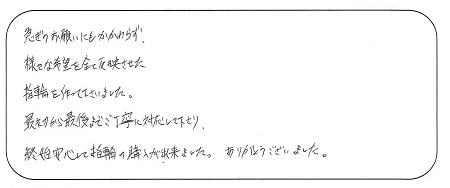 急ぎのお願いにもかかわらず、
様々な希望を全て反映させた
指輪を作って下さいました。
最初から最後までご丁寧に対応して下さり、
終始安心して指輪の購入が出来ました。 ありがとうございました。